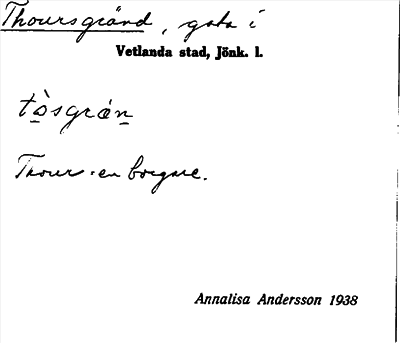 Thoursgränd, gata i
Vetlanda stad, Jönk. l.
tòsgrán
Thour = en borgare.
Annalisa Andersson 1938